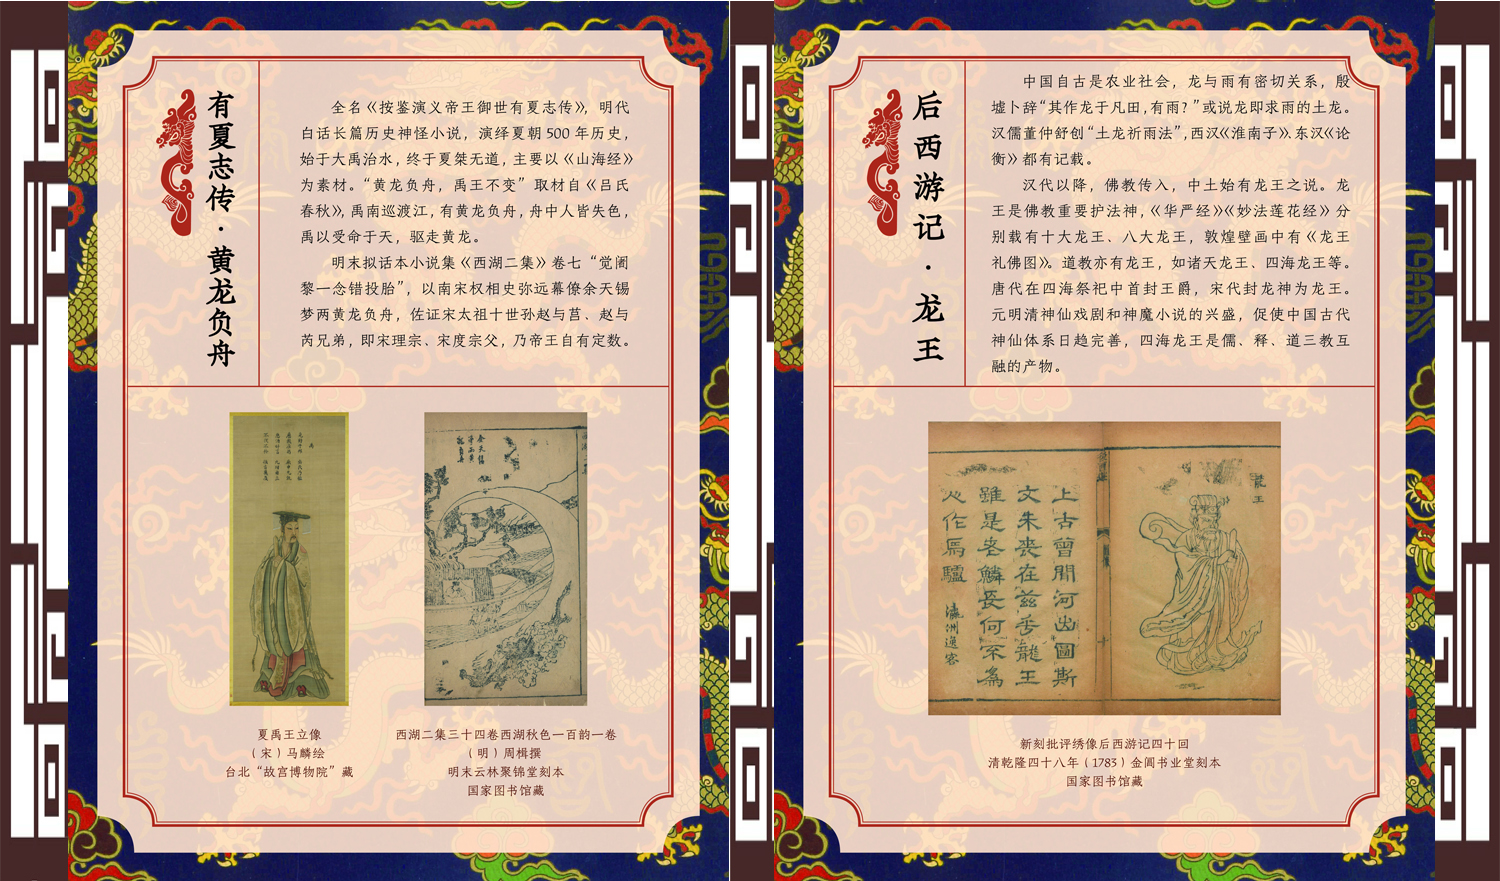 有夏志传·黄龙负舟
全名《按鉴演义帝王御世有夏志传》，明代
白话长篇历史神怪小说，演绎夏朝500年历史，
始于大禹治水，终于夏桀无道，主要以《山海经》
为素材。“黄龙负舟，禹王不变”取材自《吕氏
春秋》，禹南巡渡江，有黄龙负舟，舟中人皆失色，
禹以受命于天，驱走黄龙。
明末拟话本小说集《西湖二集》卷七“觉阇
黎一念错投胎”，以南宋权相史弥远幕僚余天锡
梦两黄龙负舟，佐证宋太祖十世孙赵与莒、赵与
芮兄弟，即宋理宗、宋度宗父，乃帝王自有定数。
夏禹王立像
（宋）马麟绘
台北“故宫博物院”藏
西湖二集三十四卷西湖秋色一百韵一卷
（明）周楫撰
明末云林聚锦堂刻本
国家图书馆藏
后西游记·龙王
中国自古是农业社会，龙与雨有密切关系，殷
墟卜辞“其作龙于凡田，有雨？”或说龙即求雨的土龙。
汉儒董仲舒创“土龙祈雨法”，西汉《淮南子》、东汉《论
衡》都有记载。
汉代以降，佛教传入，中土始有龙王之说。龙
王是佛教重要护法神，《华严经》《妙法莲花经》分
别载有十大龙王、八大龙王，敦煌壁画中有《龙王
礼佛图》。道教亦有龙王，如诸天龙王、四海龙王等。
唐代在四海祭祀中首封王爵，宋代封龙神为龙王。
元明清神仙戏剧和神魔小说的兴盛，促使中国古代
神仙体系日趋完善，四海龙王是儒、释、道三教互
融的产物。
龍王
上古曾聞河出圖斯
文未喪在茲乎龍王
雖是老鱗長何不為
人作馬驢
瀛洲逸客
新刻批评绣像后西游记四十回
清乾隆四十八年（1783）金阊书业堂刻本
国家图书馆藏